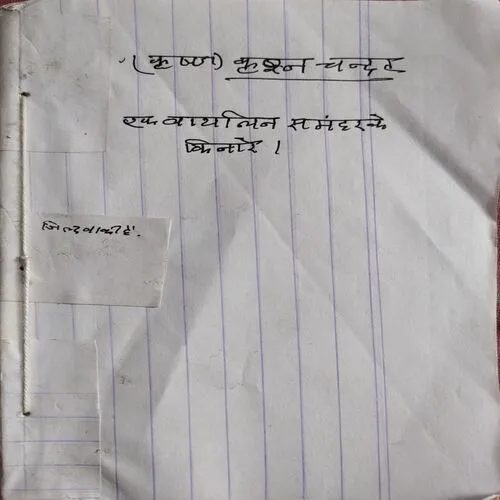 (कृष्ण) कृश्न चन्दर
एक वायलिन समंदर के
किनारे ।
जिल्द बाकी है.